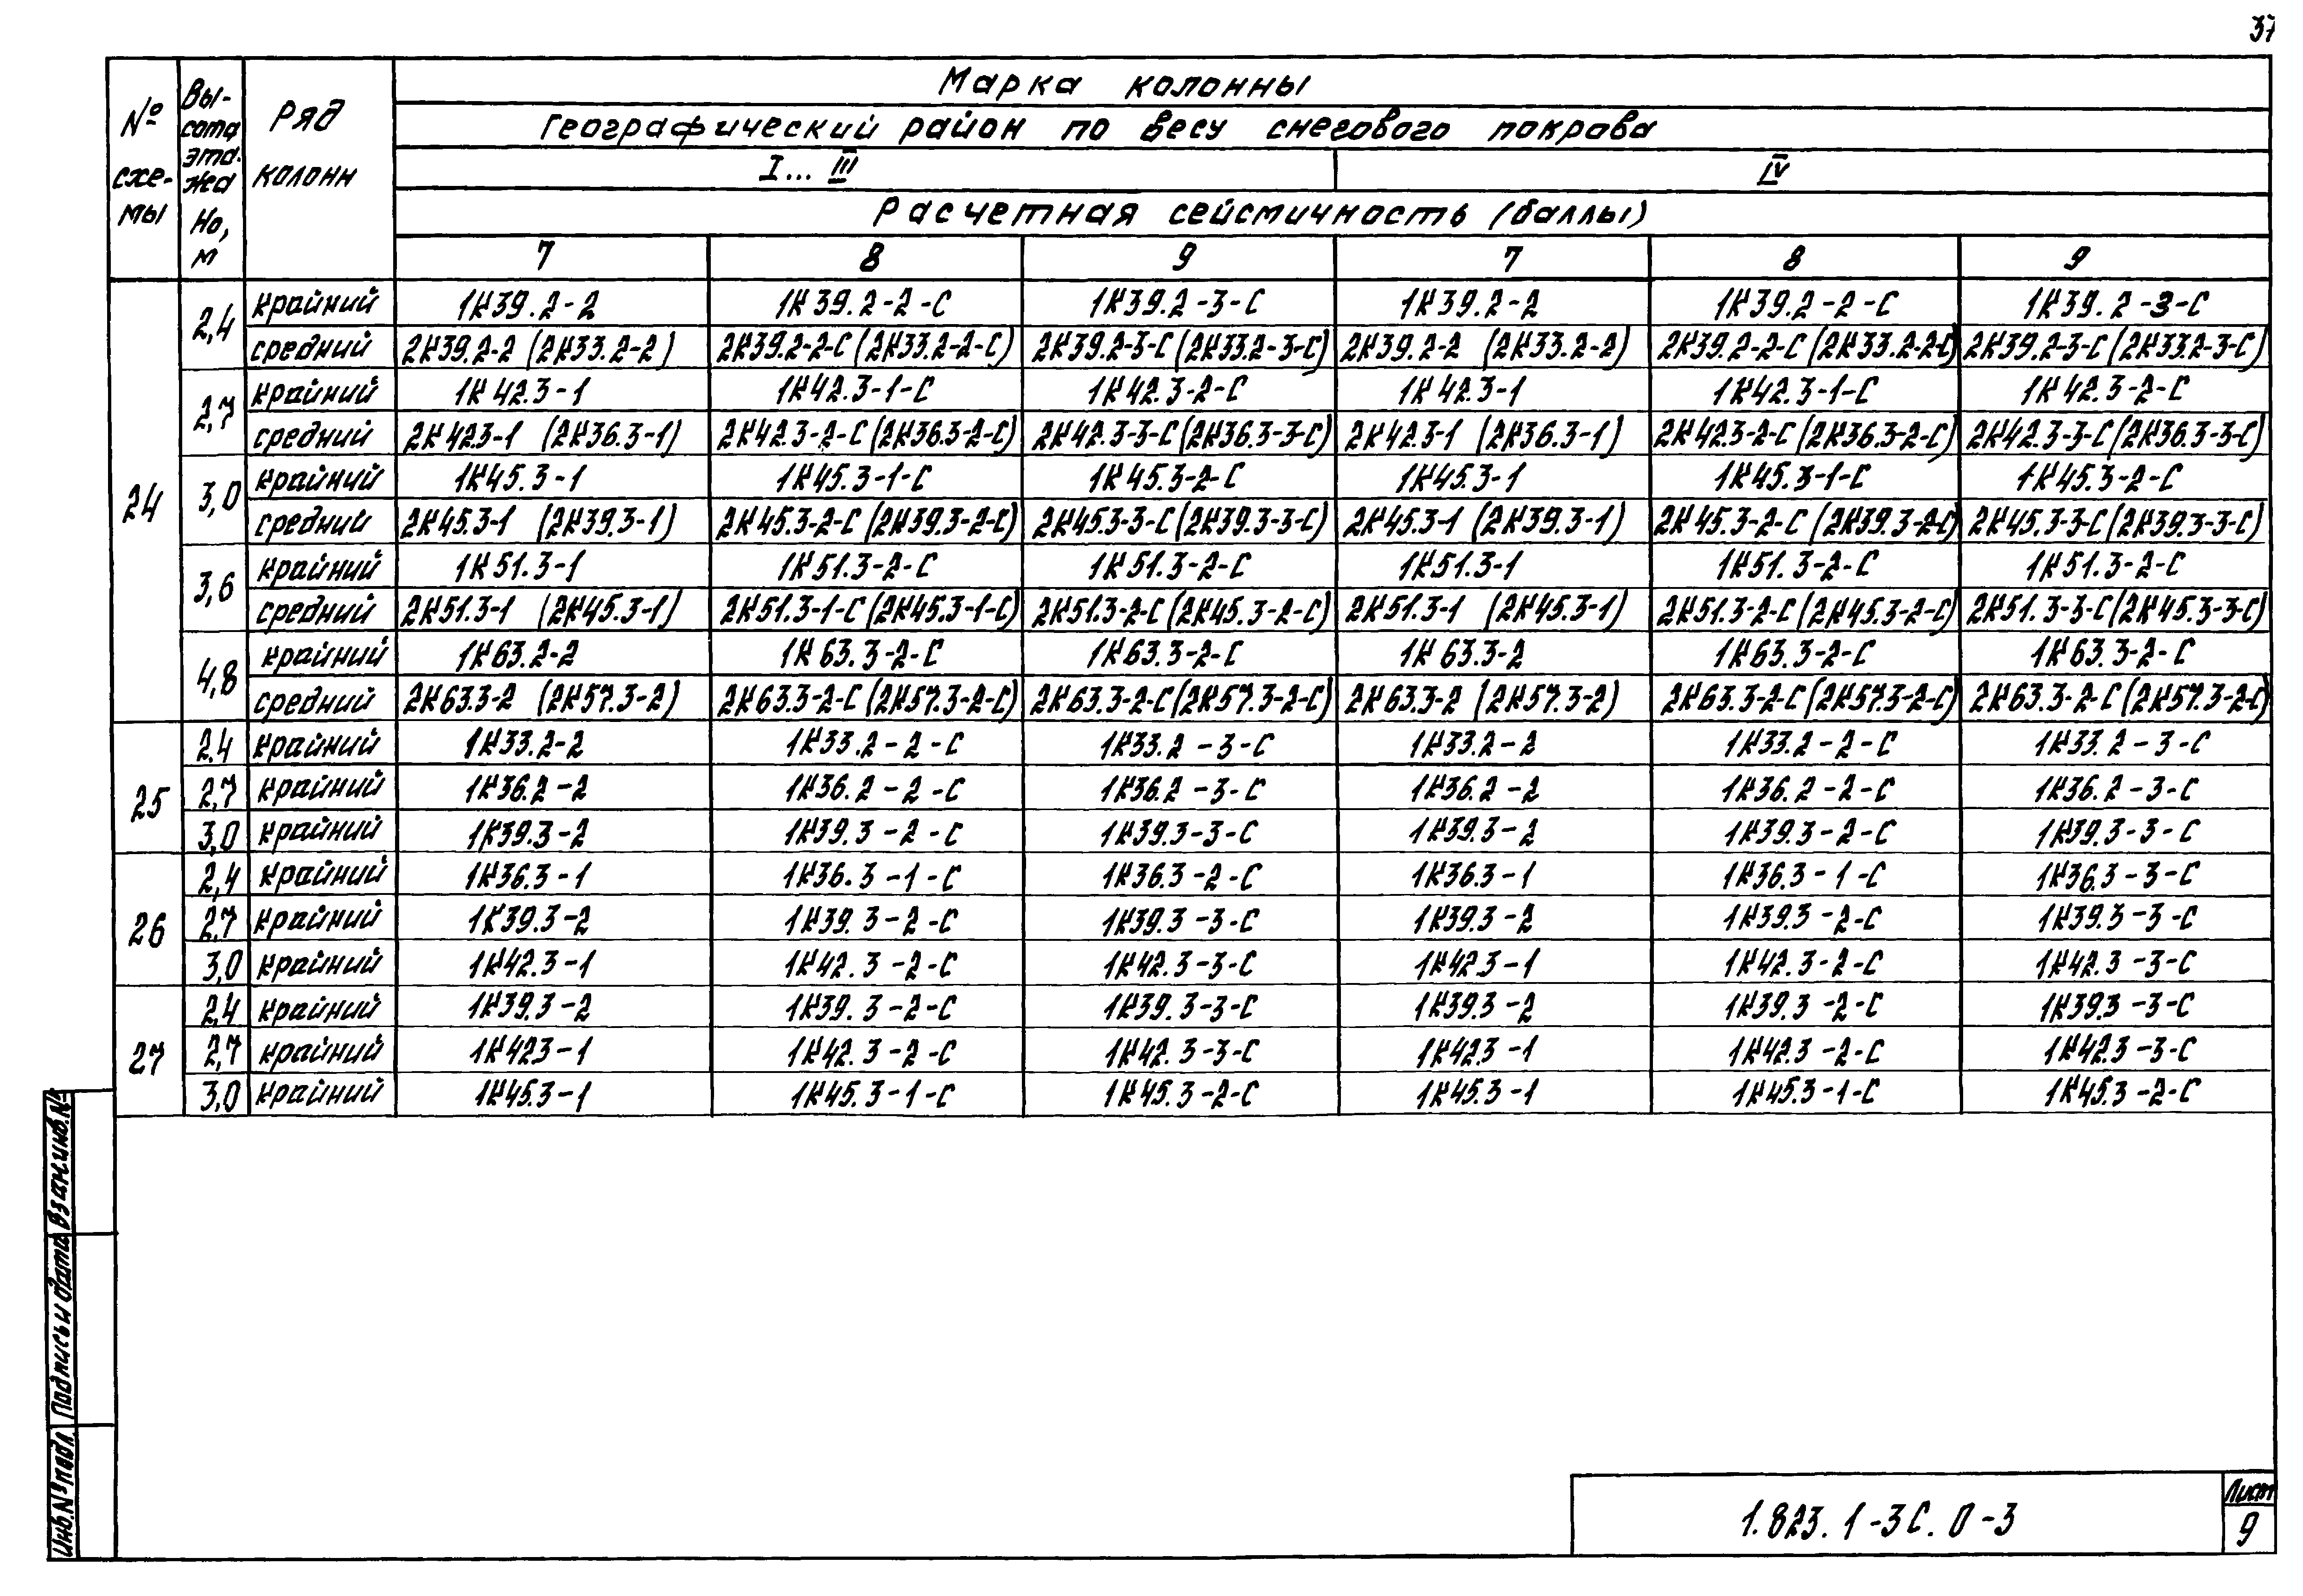 37
№ схе- мы
Вы- сота эта- жа Но, м
Ряд колонн
Марка колонны
Географический район по весу снегового покрова
I... III IV
Расчетная сейсмичность (баллы)
7 8 9 7 8 9
24 2,4 крайний 1К39.2-2 1К39.2-2-С 1К39.2-3-С 1К39.2-2 1К39.2-2-С 1К39.2-3-С
средний 2К39.2-2 (2К33.2-2) 2К39.2-2-С (2К33.2-2-С) 2К39.2-3-С (2К33.2-3-С) 2К39.2-2 (2К33.2-2) 2К39.2-2-С (2К33.2-2-С) 2К39.2-3-С (2К33.2-3-С)
2,7 крайний 1К42.3-1 1К42.3-1-С 1К42.3-2-С 1К42.3-1 1К42.3-1-С 1К42.3-2-С
средний 2К42.3-1 (2К36.3-1) 2К42.3-2-С (2К36.3-2-С) 2К42.3-3-С (2К36.3-3-С) 2К42.3-1 (2К36.3-1) 2К42.3-2-С (2К36.3-2-С) 2К42.3-3-С (2К36.3-3-С)
3,0 крайний 1К45.3-1 1К45.3-1-С 1К45.3-2-С 1К45.3-1 1К45.3-1-С 1К45.3-2-С
средний 2К45.3-1 (2К39.3-1) 2К45.3-2-С (2К39.3-2-С) 2К45.3-3-С (2К39.3-3-С) 2К45.3-1 (2К39.3-1) 2К45.3-2-С (2К39.3-2-С) 2К45.3-3-С (2К39.3-3-С)
3,6 крайний 1К51.3-1 1К51.3-2-С 1К51.3-2-С 1К51.3-1 1К51.3-2-С 1К51.3-2-С
средний 2К51.3-1 (2К45.3-1) 2К51.3-1-С (2К45.3-1-С) 2К51.3-2-С (2К45.3-2-С) 2К51.3-1 (2К45.3-1) 2К51.3-2-С (2К45.3-2-С) 2К51.3-3-С (2К45.3-3-С)
4,8 крайний 1К63.2-2 1К63.3-2-С 1К63.3-2-С 1К63.3-2 1К63.3-2-С 1К63.3-2-С
средний 2К63.3-2 (2К57.3-2) 2К63.3-2-С (2К57.3-2-С) 2К63.3-2-С (2К57.3-2-С) 2К63.3-2 (2К57.3-2) 2К63.3-2-С (2К57.3-2-С) 2К63.3-2-С (2К57.3-2-С)
25 2,4 крайний 1К33.2-2 1К33.2-2-С 1К33.2-3-С 1К33.2-2 1К33.2-2-С 1К33.2-3-С
2,7 крайний 1К36.2-2 1К36.2-2-С 1К36.2-3-С 1К36.2-2 1К36.2-2-С 1К36.2-3-С
3,0 крайний 1К39.3-2 1К39.3-2-С 1К39.3-3-С 1К39.3-2 1К39.3-2-С 1К39.3-3-С
26 2,4 крайний 1К36.3-1 1К36.3-1-С 1К36.3-2-С 1К36.3-1 1К36.3-1-С 1К36.3-3-С
2,7 крайний 1К39.3-2 1К39.3-2-С 1К39.3-3-С 1К39.3-2 1К39.3-2-С 1К39.3-3-С
3,0 крайний 1К42.3-1 1К42.3-2-С 1К42.3-3-С 1К42.3-1 1К42.3-2-С 1К42.3-3-С
27 2,4 крайний 1К39.3-2 1К39.3-2-С 1К39.3-3-С 1К39.3-2 1К39.3-2-С 1К39.3-3-С
2,7 крайний 1К42.3-1 1К42.3-2-С 1К42.3-3-С 1К42.3-1 1К42.3-2-С 1К42.3-3-С
3,0 крайний 1К45.3-1 1К45.3-1-С 1К45.3-2-С 1К45.3-1 1К45.3-1-С 1К45.3-2-С
Взам.инв.№
Подпись и дата
Инв.№подл.
1.823.1-3С.0-3
Лист
9